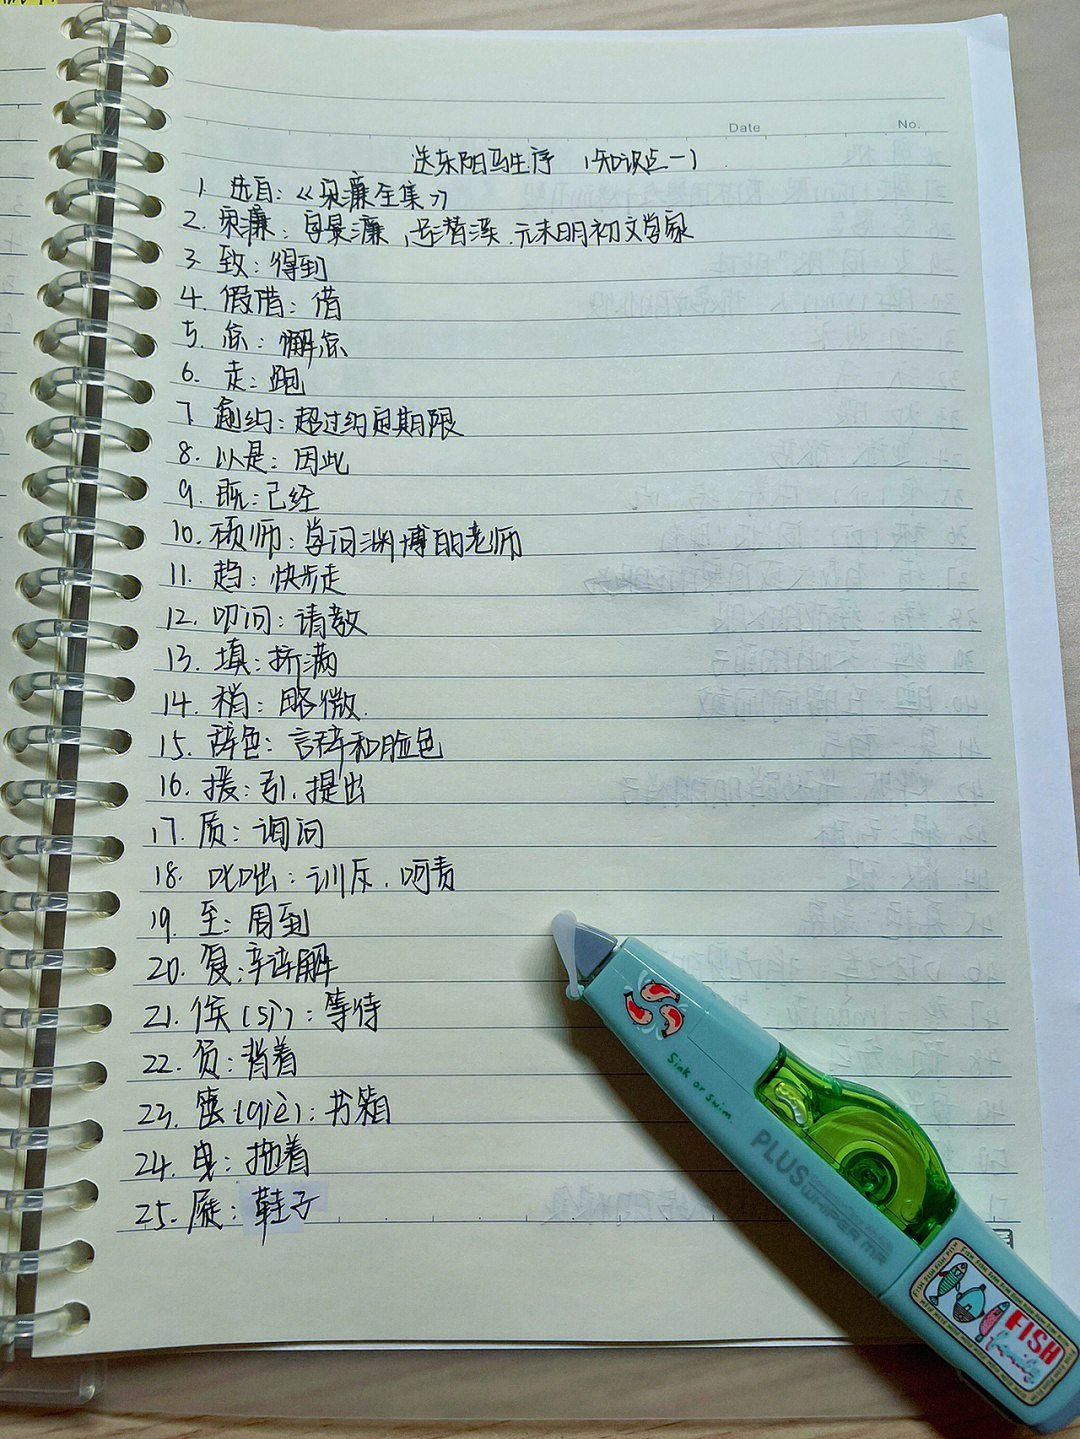 Date No.
送东阳马生序 (知识点一)
1. 选自:《宋濂全集》
2. 宋濂:字景濂,号潜溪.元末明初文学家
3. 致:得到
4. 假借:借
5. 怠:懈怠
6. 走:跑
7. 逾约:超过约定期限
8. 以是:因此
9. 既:已经
10. 硕师:学问渊博的老师
11. 趋:快步走
12. 叩问:请教
13. 填:挤满
14. 稍:略微.
15. 辞色:言辞和脸色
16. 援:引,提出
17. 质:询问
18. 叱咄:训斥.呵责
19. 至:周到
20. 复:辛辞解
21. 俟(sì):等待
22. 负:背着
23. 箧(qiè):书箱
24. 曳:拖着
25. 屣:鞋子
Sink or swim.
PLUS
WHIPER MR
FISH